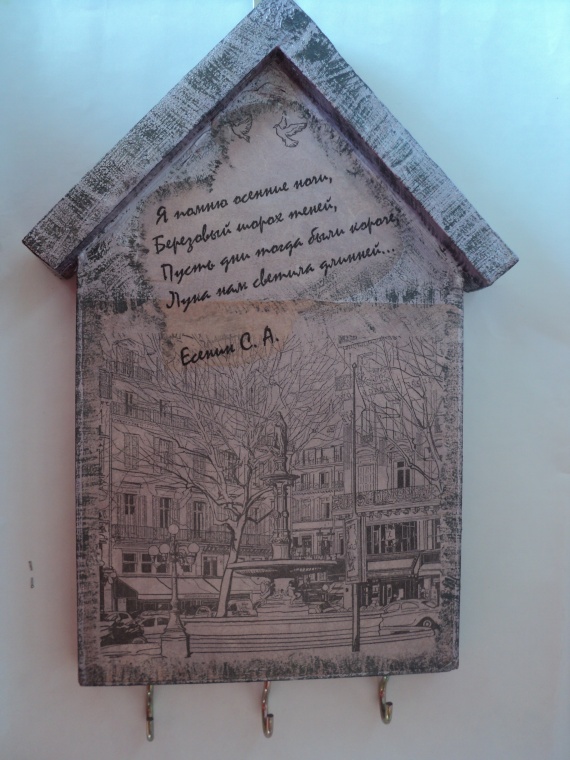 Я помню осенние ночи,
Березовый шорох теней,
Пусть дни тогда были короче,
Луна нам светила длинней...
Есенин С. А.